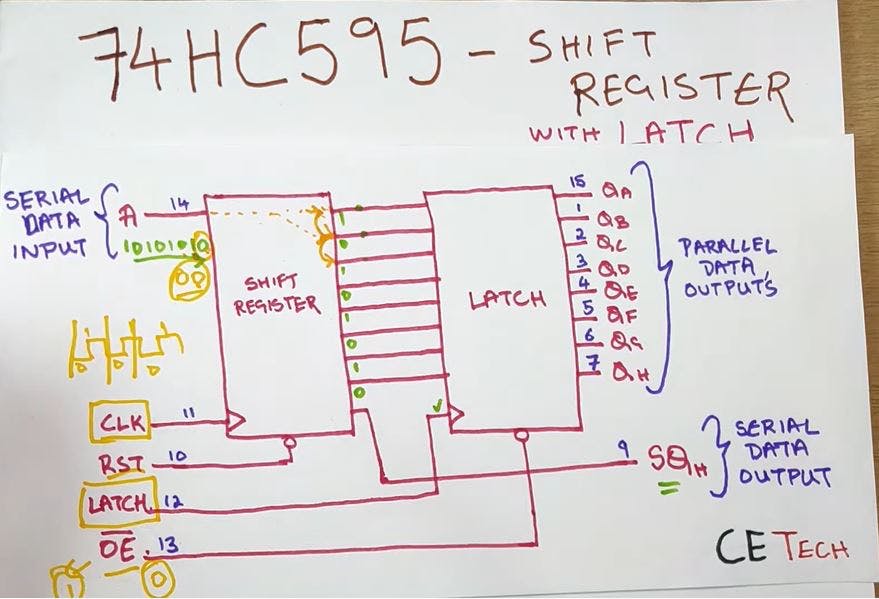 74HC595 - SHIFT
REGISTER
WITH LATCH
SERIAL
DATA
INPUT
A 14
10101010
SHIFT
REGISTER
1
0
1
0
1
0
1
0
LATCH
15 QA
1 QB
2 QC
3 QD
4 QE
5 QF
6 QG
7 QH
PARALLEL
DATA
OUTPUTS
CLK 11
RST 10
LATCH 12
OE 13
1 0
9 SQH
SERIAL
DATA
OUTPUT
CE TECH